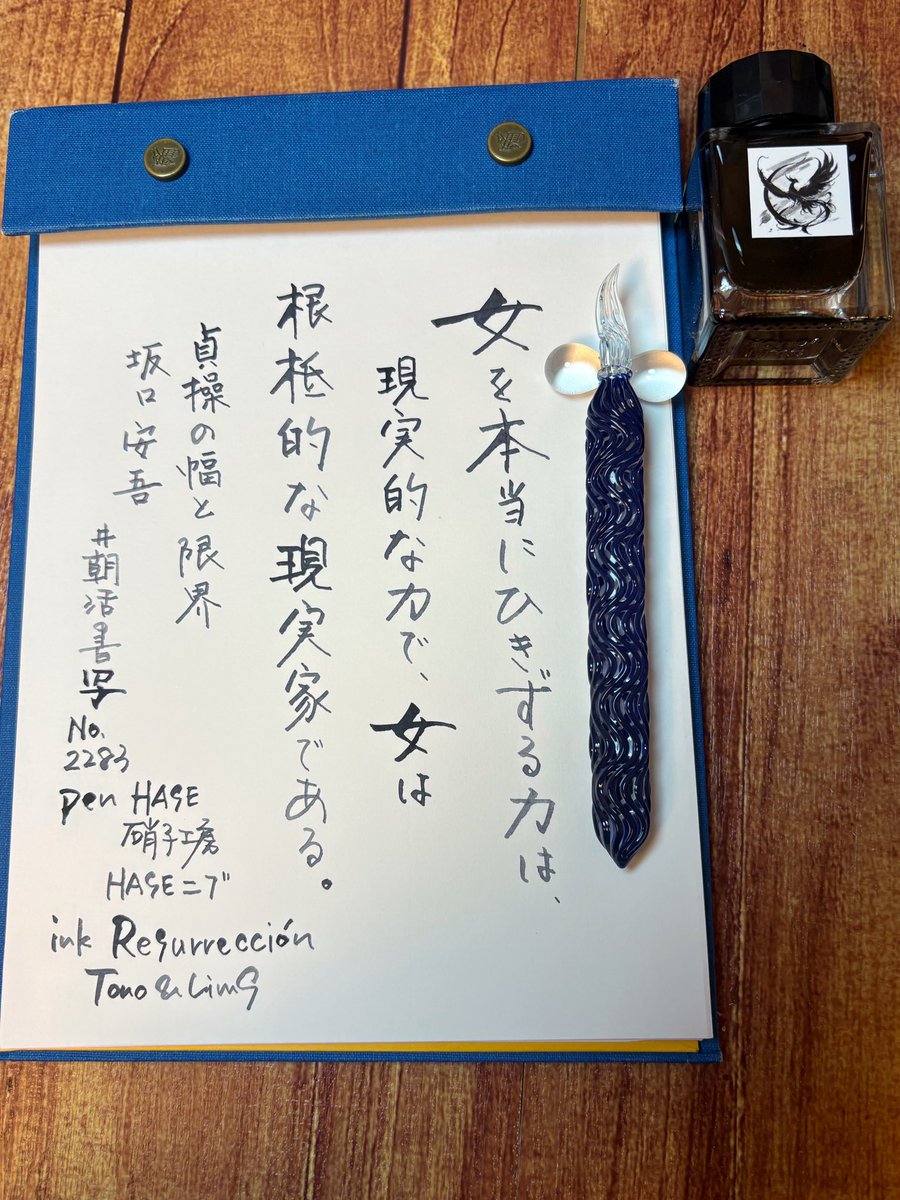 女を本当にひきずる力は、
現実的な力で、女は
根柢的な現実家である。
貞操の幅と限界
坂口安吾
#朝活書写
No.
2283
pen HASE
硝子工房
HASEニブ
ink Resurrección
Tono & Lims